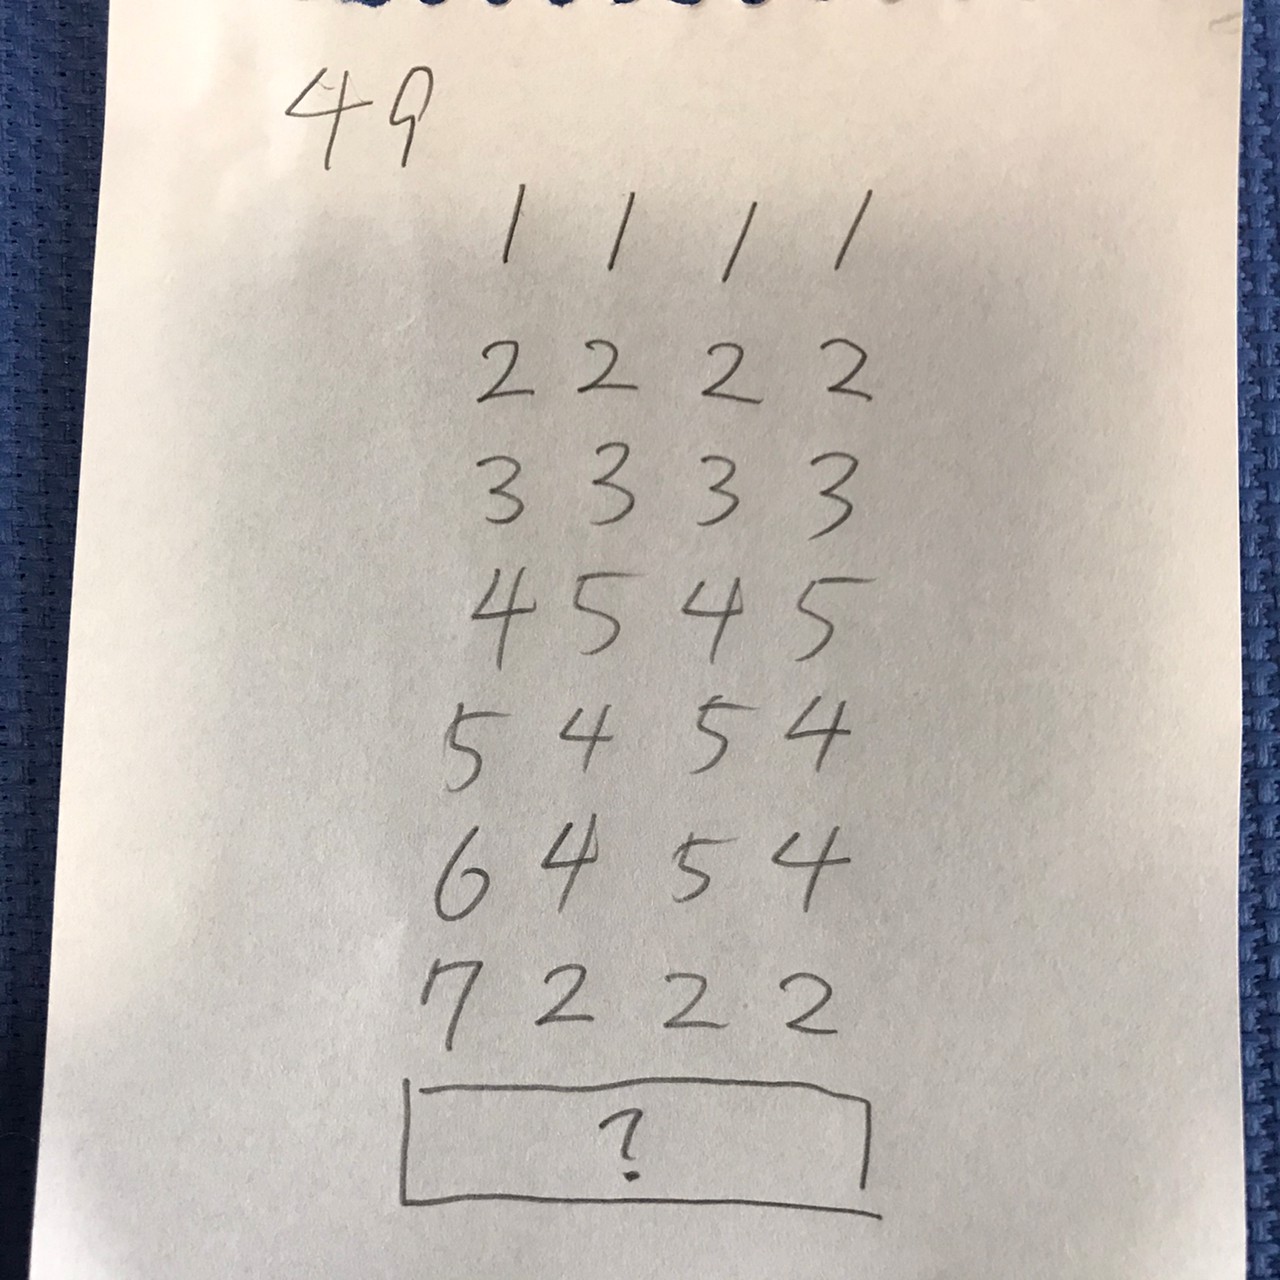 49
1 1 1 1
2 2 2 2
3 3 3 3
4 5 4 5
5 4 5 4
6 4 5 4
7 2 2 2
?